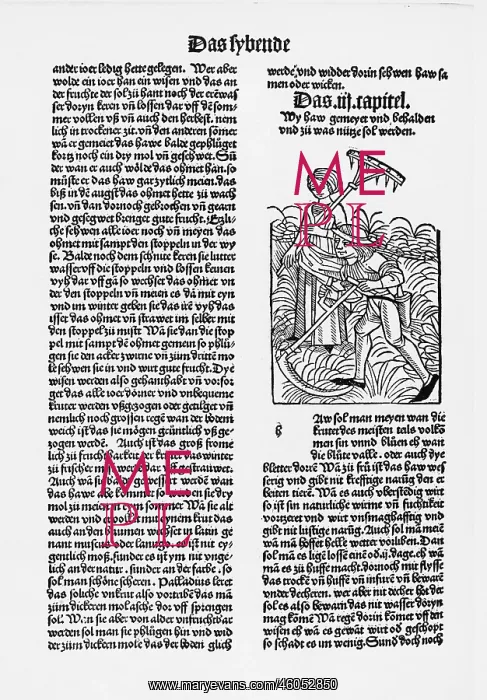 Das sybende
ander ioer ledig hette gelegen. Wer aber
wolde ein ioer han ein wisen vnd das an
der fruchte der sol zů hant noch der
ser doryn keren vñ lossen dar vff dē som
mer vollen vß vñ auch den herbest. nem
lich in trockener zit. vñ den anderen sōmer
wā er gemeiet das hawe balde gephlůget
kortz noch ein dry mol vñ geschwet. Sů
der wan er auch wölde das ohmet han. so
můste er das haw gar zytlich meien. das
biß in dē augst das ohmet hette zů wach
sen. vñ dan dornoch gebrochen vñ geant
vnd gesegwet brenget gute frucht.
che sehwen alle ioer noch vñ meyen das
ohmet mit sampt den stoppeln in der wy
se. Balde noch dem schnitt keren sie lutter
wasser vff die stoppeln vnd lossen keinen
vyh dar vff gā so wechset das ohmet vn
der den stoppeln vñ meien es dā mit eyn
vnd im winter geben sie das irē vyh das
isset das ohmet vñ strawet im selber mit
den stoppel zů mist Wā sie dan die stop
pel mit sampt dē ohmet gemein so phlů
gen sie den acker zwirent vñ zům dritē mo
le sehwen sie in vnd wirt gute frucht. Dye
wisen werden also gehanthabt vñ
get das alle ioer dörner vnd vnbequeme
kruter werden vßgezogen oder getilget vñ
nemlich noch grossen regē wan der bodem
weich ist das sie mögen grüntlich vß ge
zogen werdē. Auch ist das groß frome
lich zů
zů frischer
Auch wā sie werdē wan
das hawe sie dry
mol zů sommer Wā sie alt
werden vnd mit eynem krut das
auch an den
gentlich moß. sunder es ist ym nit vnge
lich an der natur. sunder an der farbe. so
sol man schöne scheren. Palladius leret
das soliche vnkrut also vortribe das mā
zům dickeren mol asche dor vff sprengen
sol. Wañ sie aber von alder vnfruchtbar
werden sol man sie phlůgen hin vnd wid
der zům dicken mole das der boden glich
werde, vnd widder dorin sehwen haw sa
men oder wicken.
Das .iij. capitel.
Wy haw gemeyet vnd behalden
vnd zů was nütze sol werden.
Aw sol man meyen wan die
kruter des meisten teils volkō
men sin vnnd blüen eh wan
die blüte valle. oder auch dye
bletter dorrē Wā zů frů ist das haw wes
serig vnd gibt nit krefftige narüg den er
beiten tiere. Wā es auch vberstēdig wirt
so ist sin naturliche wirme vñ fuchtikeit
vorzeret vnd wirt vnsmaghafftig vnd
gibt nit lustige narüg. Auch sol mā meiē
wā mā hoffet helle wetter vorliben. Dan
sol mā es lige lossē einē od .ij. dage. eh wā
mā es zů huffe macht. dornoch mit flysse
das trockē vñ huffē vñ infurē vñ bewarē
vnder decheren. wer aber nit decher het der
sol es also bewarn das nit wasser doryn
mag komē Wā regē dorin komet vff den
wisen eh wā es gewāt wirt od geschopt
so schadt es im wenig. Sund doch noch
ME
PL
ME
PL
www.maryevans.com/46052850